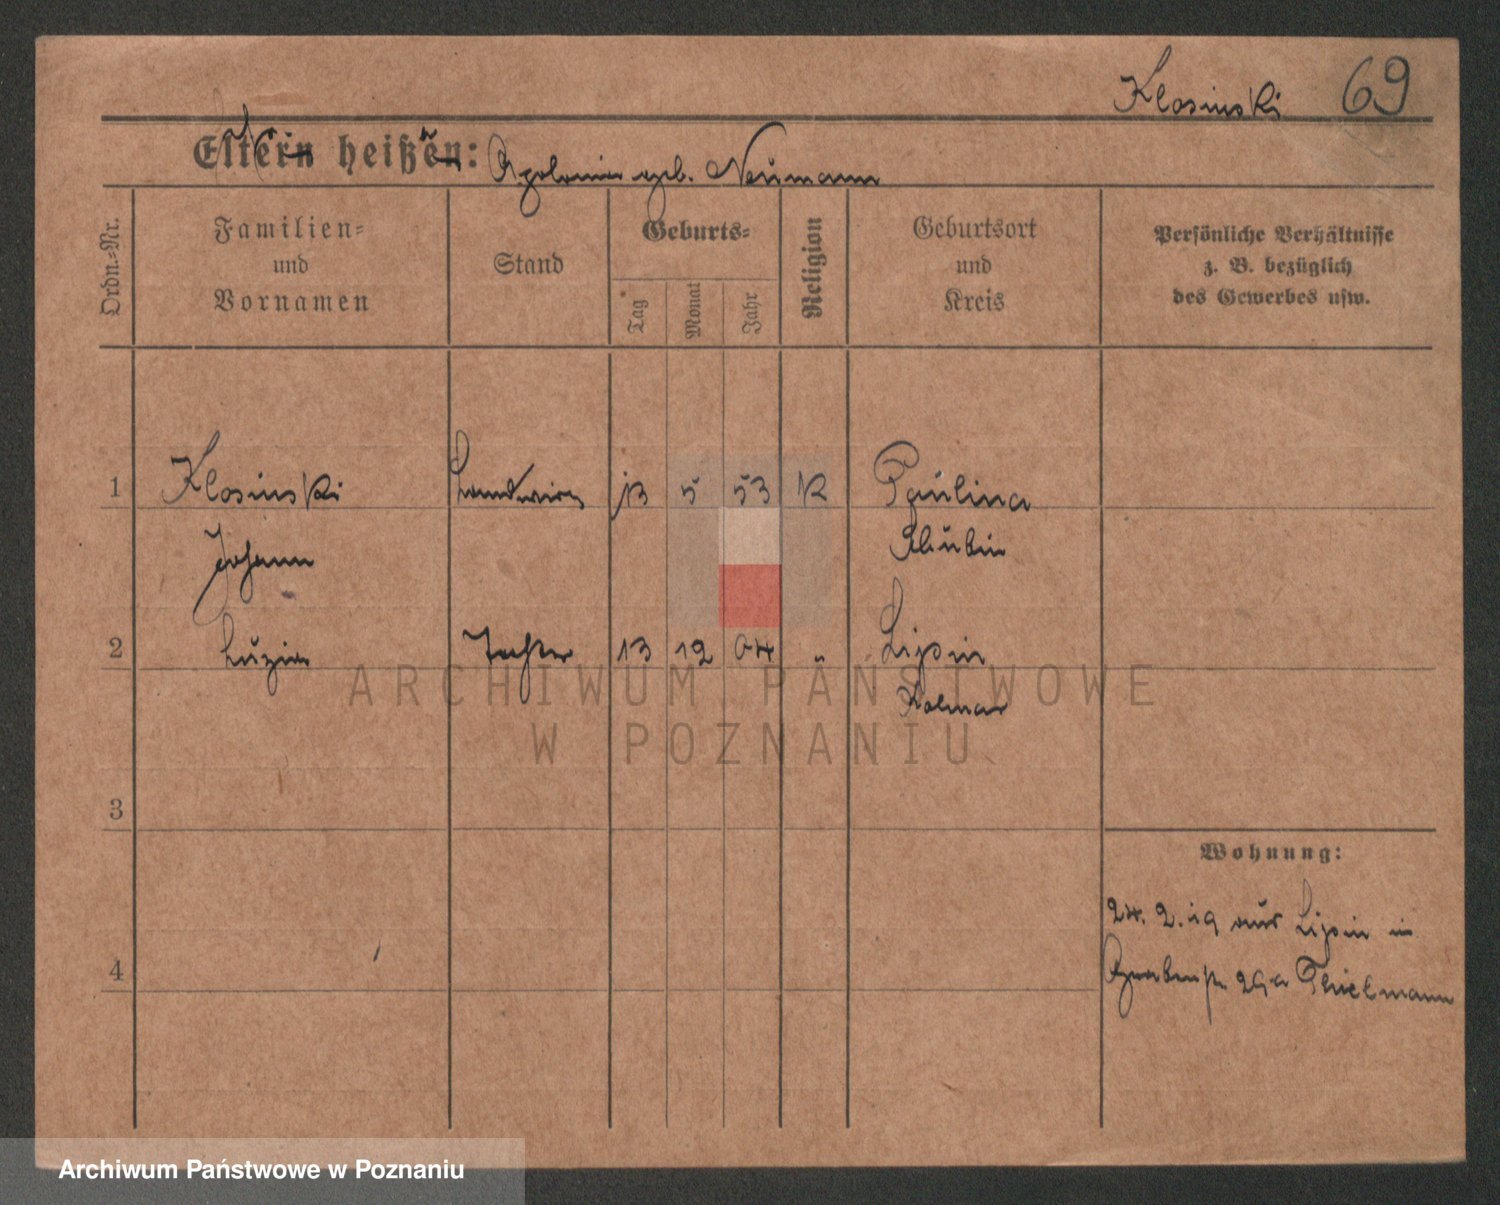 Klosinski 69
Eltern heißen: Apolonia geb. Neumann
Ordn.-Nr.
Familien-
und
Vornamen
Stand
Geburts-
Tag
Monat
Jahr
Religion
Geburtsort
und
Kreis
Persönliche Verhältnisse
z. B. bezüglich
des Gewerbes usw.
1 Klosinski Landwirt 13 5 53 K Paulina
Johann Schubin
2 Luzia Tochter 13 12 04 " Lipsin
Kolmar
3
Wohnung:
24. 2. 19 aus Lipsin in
4
29a Thielmann
ARCHIWUM PAŃSTWOWE
W POZNANIU
Archiwum Państwowe w Poznaniu